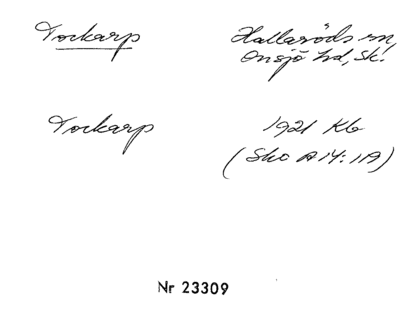 Torkarp
Hallaröds sn,
Onsjö hd, Sk.
Torkarp
1921 Kb
(Sko A 14:11A)
Nr 23309